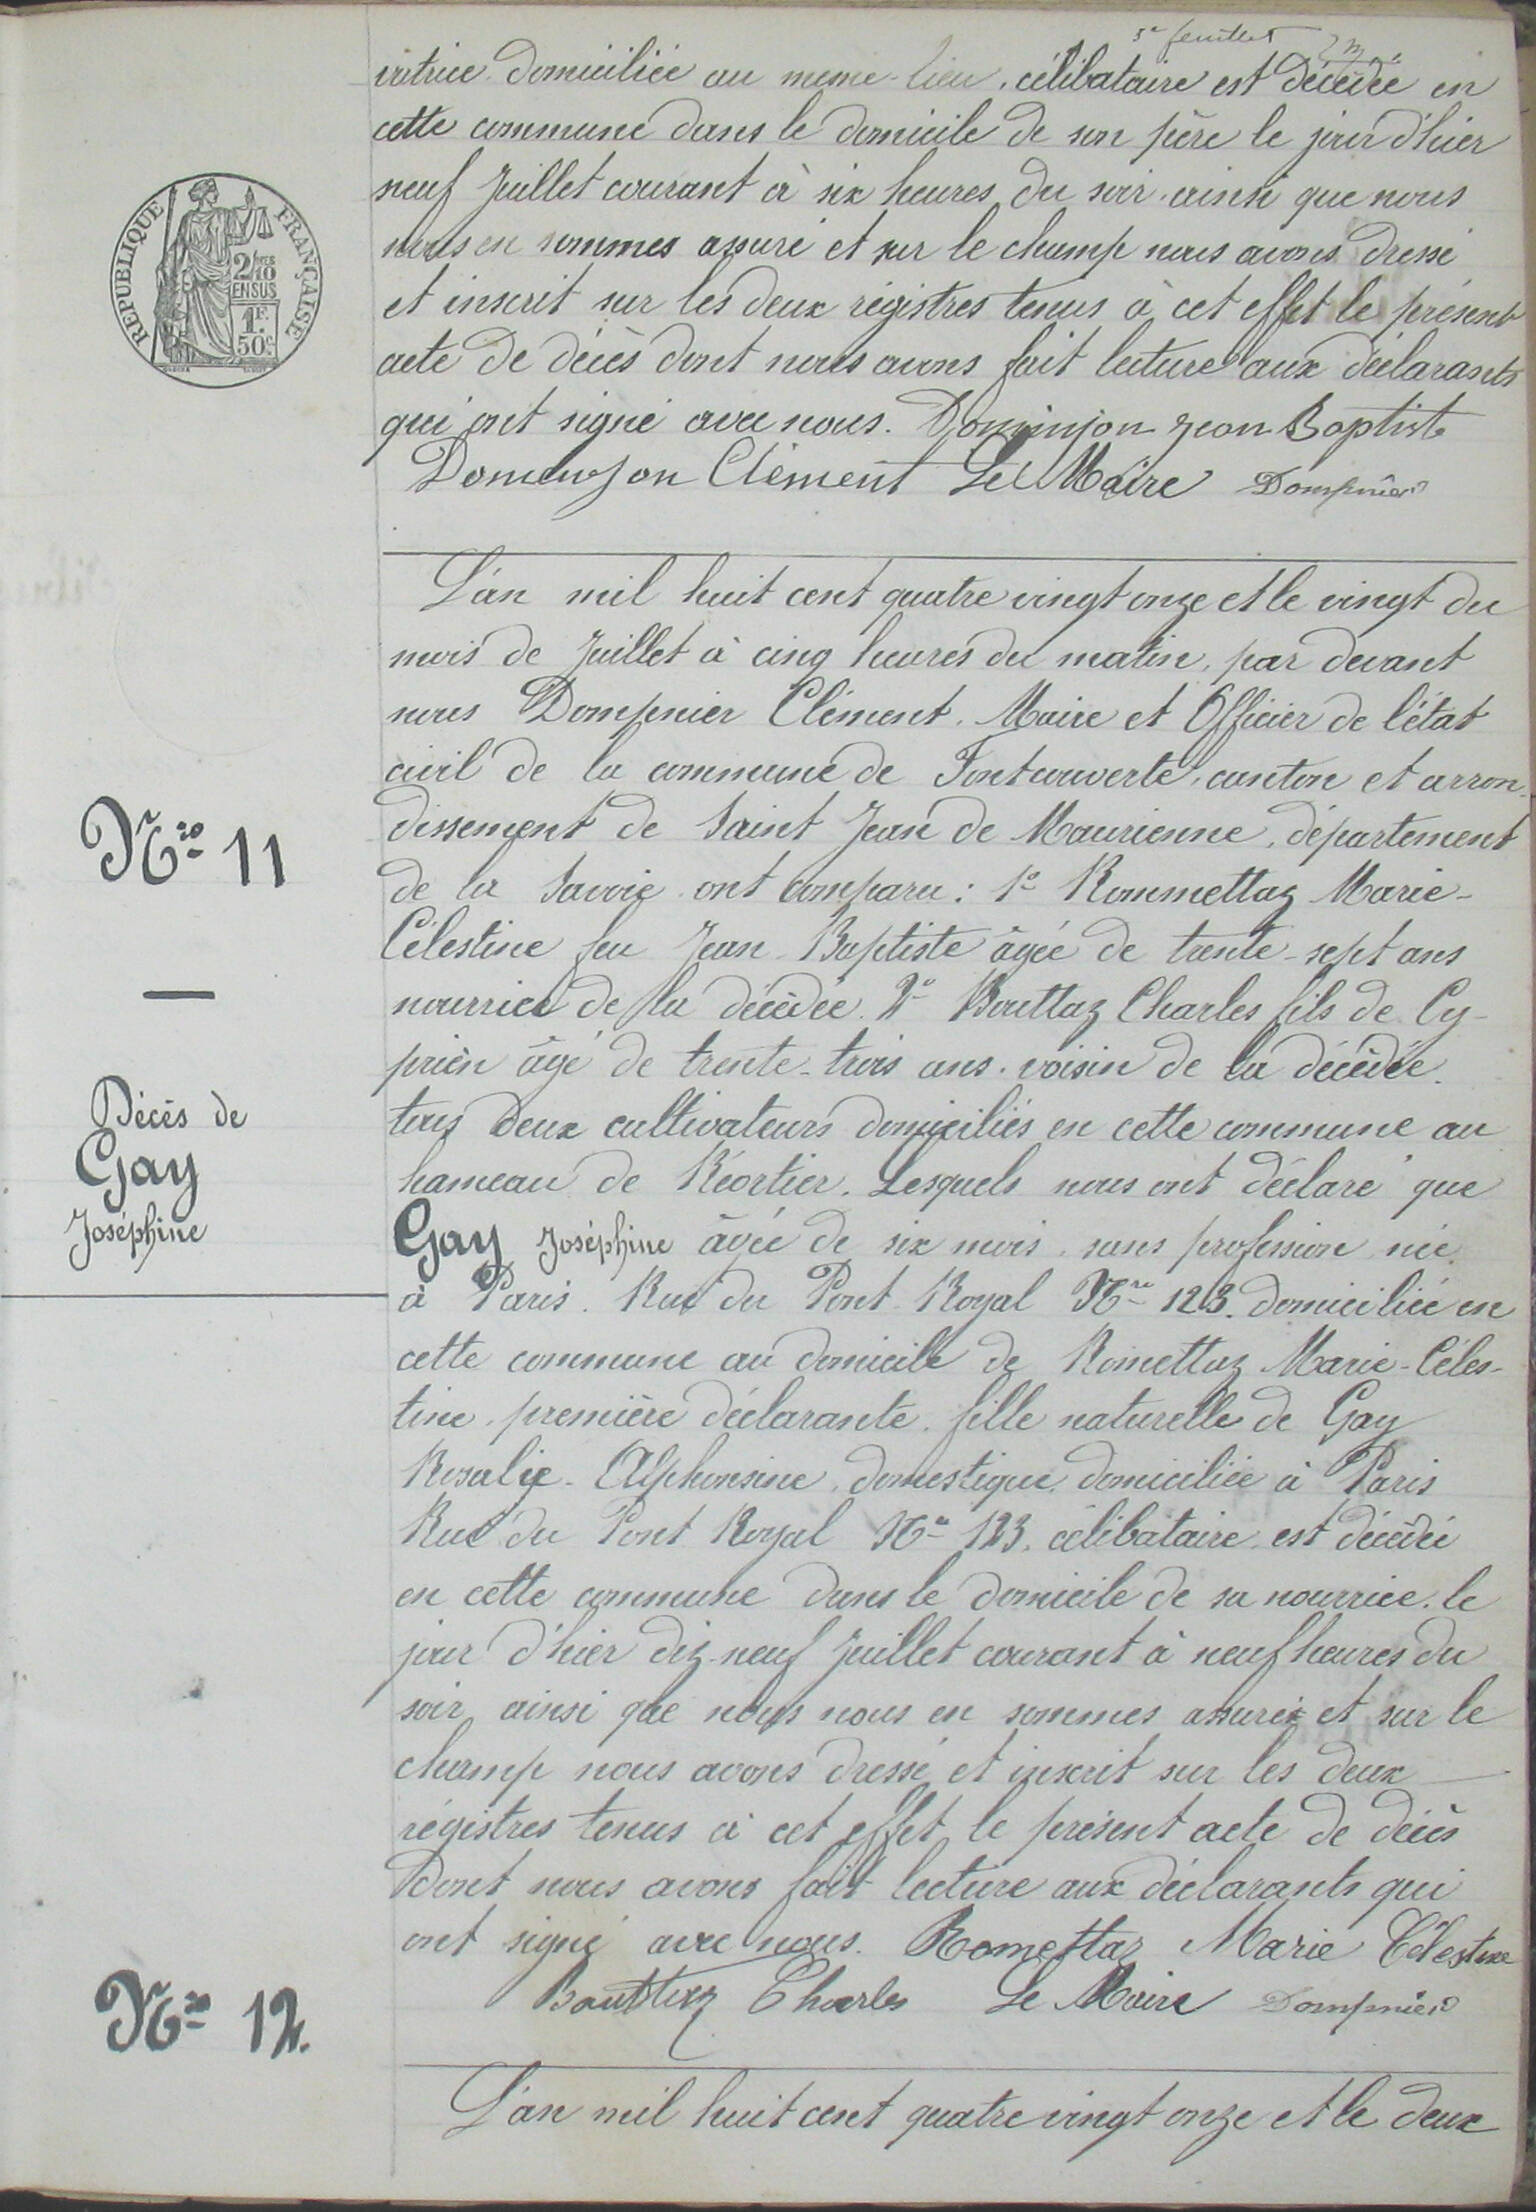 5e feuillet
vatrice domiciliée au meme lieu, célibataire est décédée en
cette commune dans le domicile de son père le jour d'hier
neuf Juillet courant à six heures du soir ainsi que nous
nous en sommes assuré et sur le champ nous avons dressé
et inscrit sur les deux régistres tenus à cet effet le présent
acte de décès dont nous avons fait lecture aux déclarants
qui ont signé avec nous. Dominjon Jean Baptiste
Domenjon Clément Le Maire Dompnier
REPUBLIQUE FRANÇAISE
2/10
EN SUS
1F.
50c
L'an mil huit cent quatre vingt onze et le vingt du
mois de Juillet à cinq heures du matin, par devant
nous Dompnier Clément, Maire et Officier de l'état
civil de la commune de Fontcouverte, canton et arron-
dissement de Saint Jean de Maurienne, département
de la Savoie ont comparu : 1° Rommettaz Marie-
Célestine feu Jean-Baptiste âgée de trente-sept ans
nourrice de la décédée. 2° Bouttaz Charles fils de Cy-
prien âgé de trente-trois ans, voisin de la décédée.
tous deux cultivateurs domiciliés en cette commune au
hameau de Réortier. Lesquels nous ont déclaré que
Gay Joséphine âgée de six mois, sans profession née
à Paris. Rue du Pont Royal Nro 123. domiciliée en
cette commune au domicile de Romettaz Marie-Céles-
tine, première déclarante, fille naturelle de Gay
Rosalie-Alphonsine, domestique, domiciliée à Paris
Rue du Pont Royal No 123, célibataire, est décédée
en cette commune dans le domicile de sa nourrice, le
jour d'hier dix-neuf Juillet courant à neuf heures du
soir ainsi que nous nous en sommes assuré et sur le
champ nous avons dressé et inscrit sur les deux
régistres tenus à cet effet le présent acte de décès
Dont nous avons fait lecture aux déclarants qui
ont signé avec nous. Romettaz Marie Célestine
Bouttaz Charles Le Maire Dompnier
Nro 11
Décès de
Gay
Joséphine
Nro 12.
L'an mil huit cent quatre vingt onze et le deux